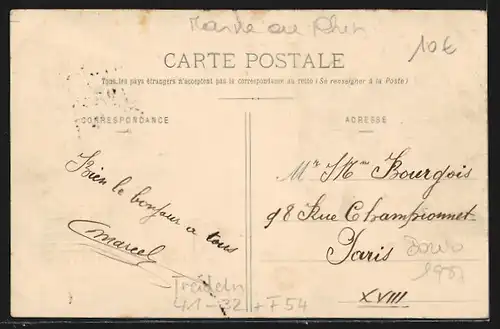 Marne au Rhin
10€
CARTE POSTALE
Tous les pays étrangers n'acceptent pas la correspondance au recto (Se renseigner à la Poste)
CORRESPONDANCE
ADRESSE
Bien le bonjour a tous
Marcel
Mr & Mme Bourgois
98 Rue Championnet
Paris
XVIII
Treideln
41-32 + F54